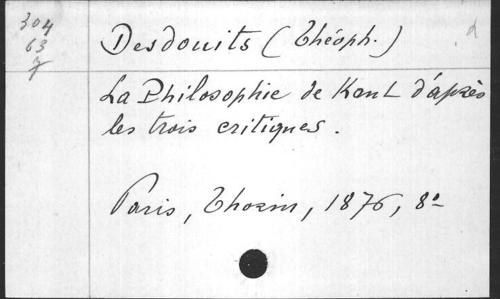 304
63
7
Desdouits (Théoph.)
d
La Philosophie de Kant d'après
les trois critiques.
Paris, Thorin, 1876, 8°